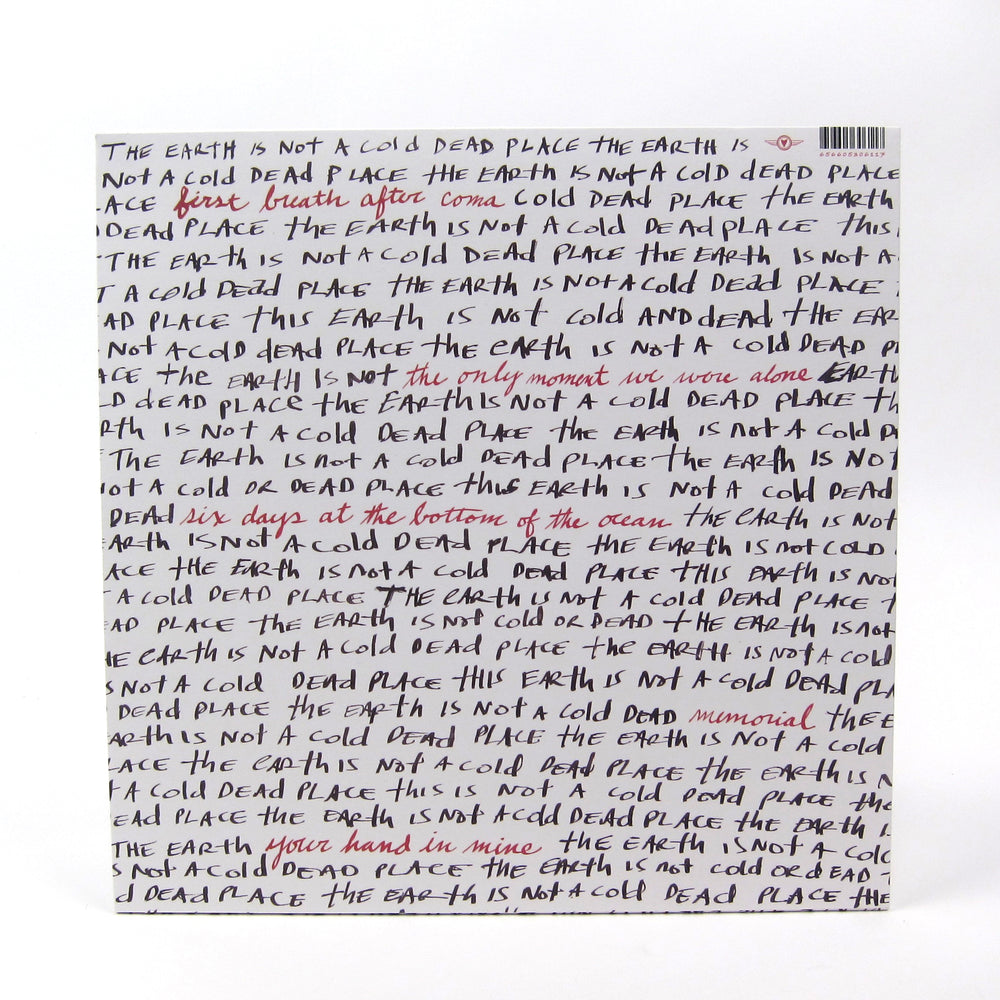 THE EARTH IS NOT A COLD DEAD PLACE THE EARTH IS
656605306117
NOT A COLD DEAD PLACE THE EARTH IS NOT A COLD DEAD PLACE
ACE first breath after coma COLD DEAD PLACE THE EARTH
DEAD PLACE THE EARTH IS NOT A COLD DEAD PLACE THIS
THE EARTH IS NOT A COLD DEAD PLACE THE EARTH IS NOT A
T A COLD DEAD PLACE THE EARTH IS NOT A COLD DEAD PLACE
AD PLACE THIS EARTH IS NOT COLD AND DEAD THE EAR
NOT A COLD DEAD PLACE THE EARTH IS NOT A COLD DEAD P
ACE THE EARTH IS NOT the only moment we were alone EARTH
D DEAD PLACE THE EARTH IS NOT A COLD DEAD PLACE TH
RTH IS NOT A COLD DEAD PLACE THE EARTH IS NOT A COLD D
THE EARTH IS NOT A COLD DEAD PLACE THE EARTH IS NOT
OT A COLD OR DEAD PLACE THIS EARTH IS NOT A COLD DEAD
DEAD six days at the bottom of the ocean THE EARTH IS NOT
ARTH IS NOT A COLD DEAD PLACE THE EARTH IS NOT COLD
ACE THE EARTH IS NOT A COLD DEAD PLACE THIS EARTH IS NOT
A COLD DEAD PLACE THE EARTH IS NOT A COLD DEAD PLACE T
AD PLACE THE EARTH IS NOT COLD OR DEAD THE EARTH IS NOT
HE EARTH IS NOT A COLD DEAD PLACE THE EARTH IS NOT A COLD
S NOT A COLD DEAD PLACE THIS EARTH IS NOT A COLD DEAD PLA
DEAD PLACE THE EARTH IS NOT A COLD DEAD memorial THE E
EARTH IS NOT A COLD DEAD PLACE THE EARTH IS NOT A COLD
LACE THE EARTH IS NOT A COLD DEAD PLACE THE EARTH IS N
T A COLD DEAD PLACE THIS IS NOT A COLD DEAD PLACE THE
EAD PLACE THE EARTH IS NOT A COLD DEAD PLACE THE EARTH I
THE EARTH your hand in mine THE EARTH IS NOT A COLD
S NOT A COLD DEAD PLACE THE EARTH IS NOT COLD OR DEAD
D DEAD PLACE THE EARTH IS NOT A COLD DEAD PLACE THE